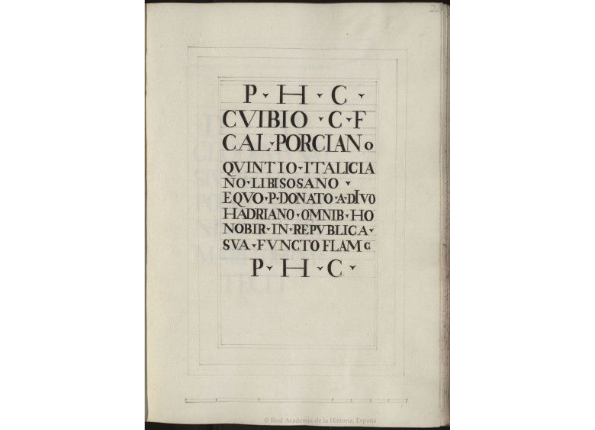 P · H · C ·
CVIBIO · C · F
CAL · PORCIANO
QVINTIO · ITALICIA
NO · LIBISOSANO ·
EQVO · P · DONATO · A · DIVO
HADRIANO · OMNIB · HO
NOBIR · IN · REPVBLICA ·
SVA · FVNCTO FLAM
P · H · C ·
© Real Academia de la Historia. España